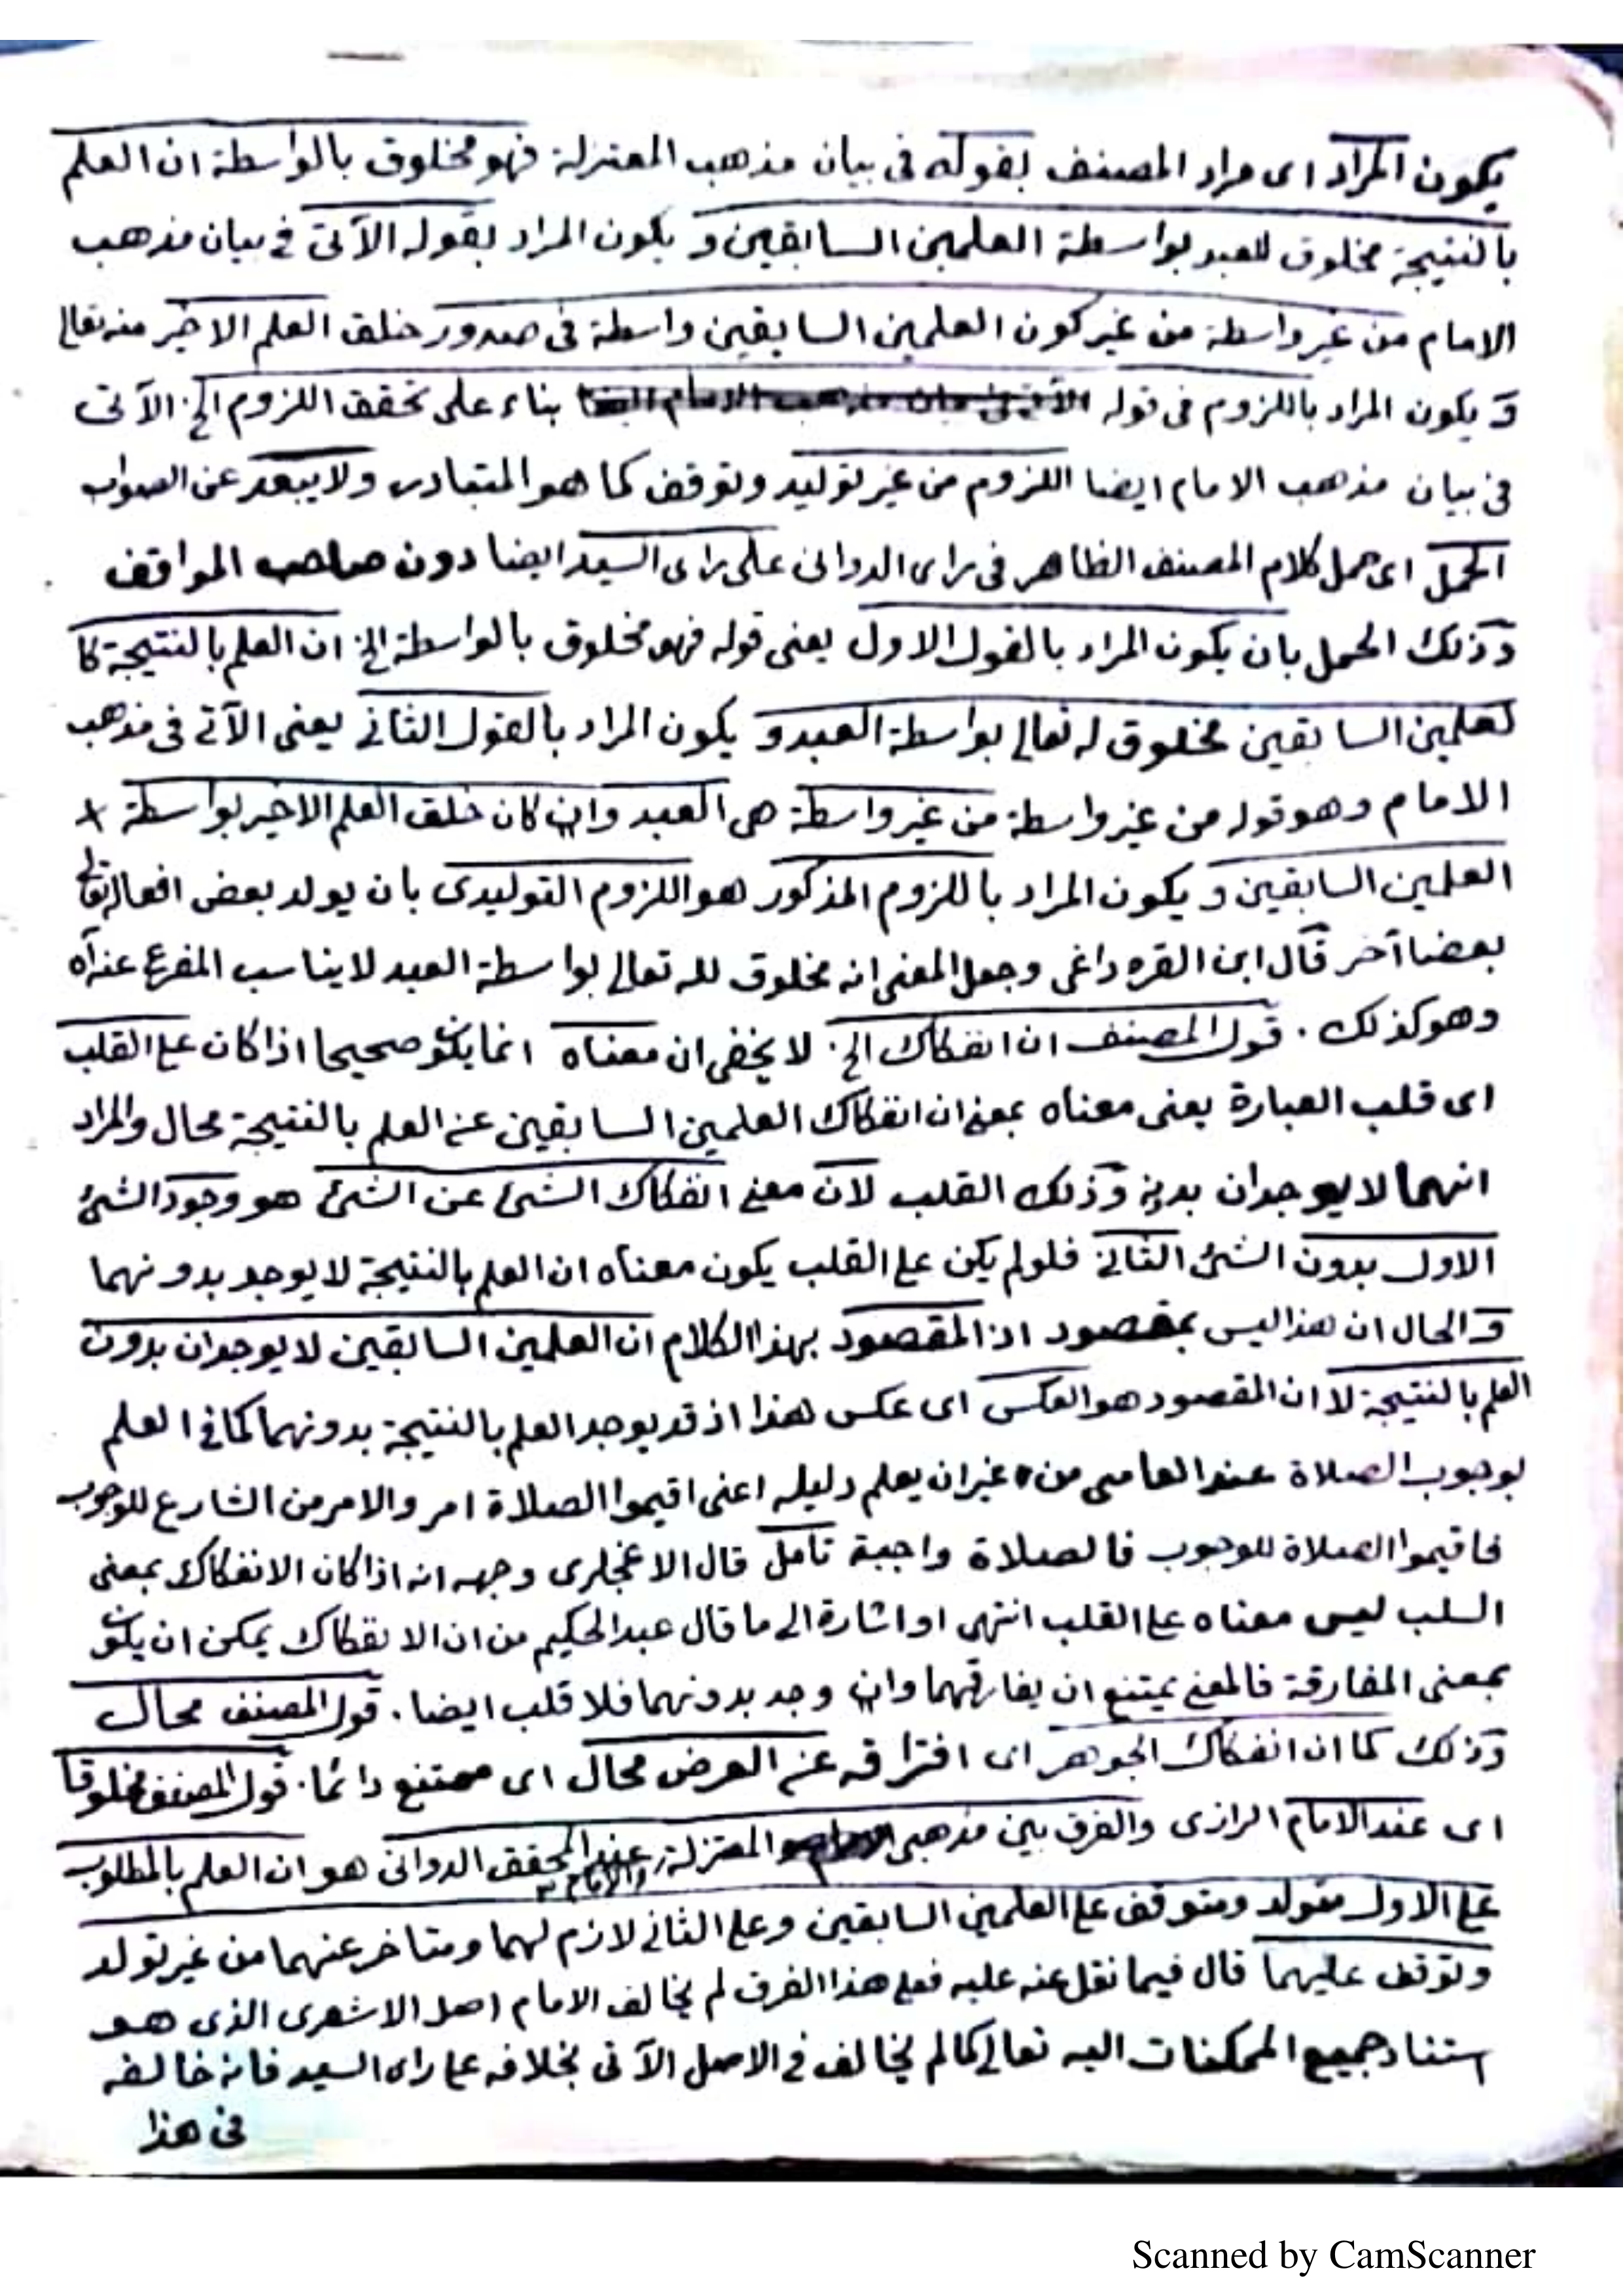 يكون المراد اى مراد المصنف بقوله فى بيان مذهب المعتزلة فهو مخلوق بالواسطة ان العلم
بالنتيجة مخلوق للعبد بواسطة العلمين السابقين و يكون المراد بقوله الآتى فى بيان مذهب
الامام من غير واسطة من غير كون العلمين السابقين واسطة فى صدور خلق العلم الاخير منه تعالى
و يكون المراد باللزوم فى قوله بناء على تحقق اللزوم الخ الآتى
فى بيان مذهب الامام ايضا اللزوم من غير توليد وتوقف كما هو المتبادر ولا يبعد عن الصواب
الحمل اى حمل كلام المصنف الظاهر فى راى الدوانى على راى السيد ايضا دون صاحب المواقف
و ذلك الحمل بان يكون المراد بالقول الاول يعنى قوله فهو مخلوق بالواسطة الخ ان العلم بالنتيجة كا
لعلمين السابقين مخلوق له تعالى بواسطة العبد و يكون المراد بالقول الثانى يعنى الآتى فى مذهب
الامام وهو قوله من غير واسطة من غير واسطة هى العبد وان كان خلق العلم الاخير بواسطة
العلمين السابقين و يكون المراد باللزوم المذكور هو اللزوم التوليدى بان يولد بعض افعاله تعالى
بعضا آخر قال ابن القره داغى وجعل المعنى انه مخلوق لله تعالى بواسطة العبد لا يناسب المفرع عنه اه
وهو كذلك . قول المصنف ان انفكاك الخ لا يخفى ان معناه انما يكون صحيحا اذا كان على القلب
اى قلب العبارة يعنى معناه بمعنى ان انفكاك العلمين السابقين عن العلم بالنتيجة محال والمراد
انهما لا يوجدان بدونه و ذلك القلب لان معنى انفكاك الشئ عن الشئ هو وجود الشئ
الاول بدون الشئ الثانى فلو لم يكن على القلب يكون معناه ان العلم بالنتيجة لا يوجد بدونهما
و الحال ان هذا ليس بمقصود اذ المقصود بهذا الكلام ان العلمين السابقين لا يوجدان بدون
العلم بالنتيجة لا ان المقصود هو العكس اى عكس هذا اذ قد يوجد العلم بالنتيجة بدونهما كما فى العلم
بوجوب الصلاة عند العامى من غير ان يعلم دليله اعنى اقيموا الصلاة امر والامر من الشارع للوجوب
فاقيموا الصلاة للوجوب فالصلاة واجبة تأمل قال وجهه انه اذا كان الانفكاك بمعنى
السلب ليس معناه على القلب انتهى او اشارة الى ما قال عبد الحكيم من ان الانفكاك يمكن ان يكون
بمعنى المفارقة فالمعنى يمتنع ان يفارقهما وان وجد بدونهما فلا قلب ايضا . قول المصنف محال
و ذلك كما ان انفكاك الجوهر اى افتراقه عن العرض محال اى ممتنع دائما . قول المصنف مخلوقا
اى عند الامام الرازى والفرق بين مذهبى المعتزلة والامام عند المحقق الدوانى هو ان العلم بالمطلوب
على الاول متولد ومتوقف على العلمين السابقين وعلى الثانى لازم لهما ومتاخر عنهما من غير تولد
وتوقف عليهما قال فيما نقل عنه عليه فعلى هذا الفرق لم يخالف الامام اصل الاشعرى الذى هو
استناد جميع الممكنات اليه تعالى كما لم يخالف فى الاصل الآتى بخلافه على راى السيد فانه خالفه
فى هذا
Scanned by CamScanner